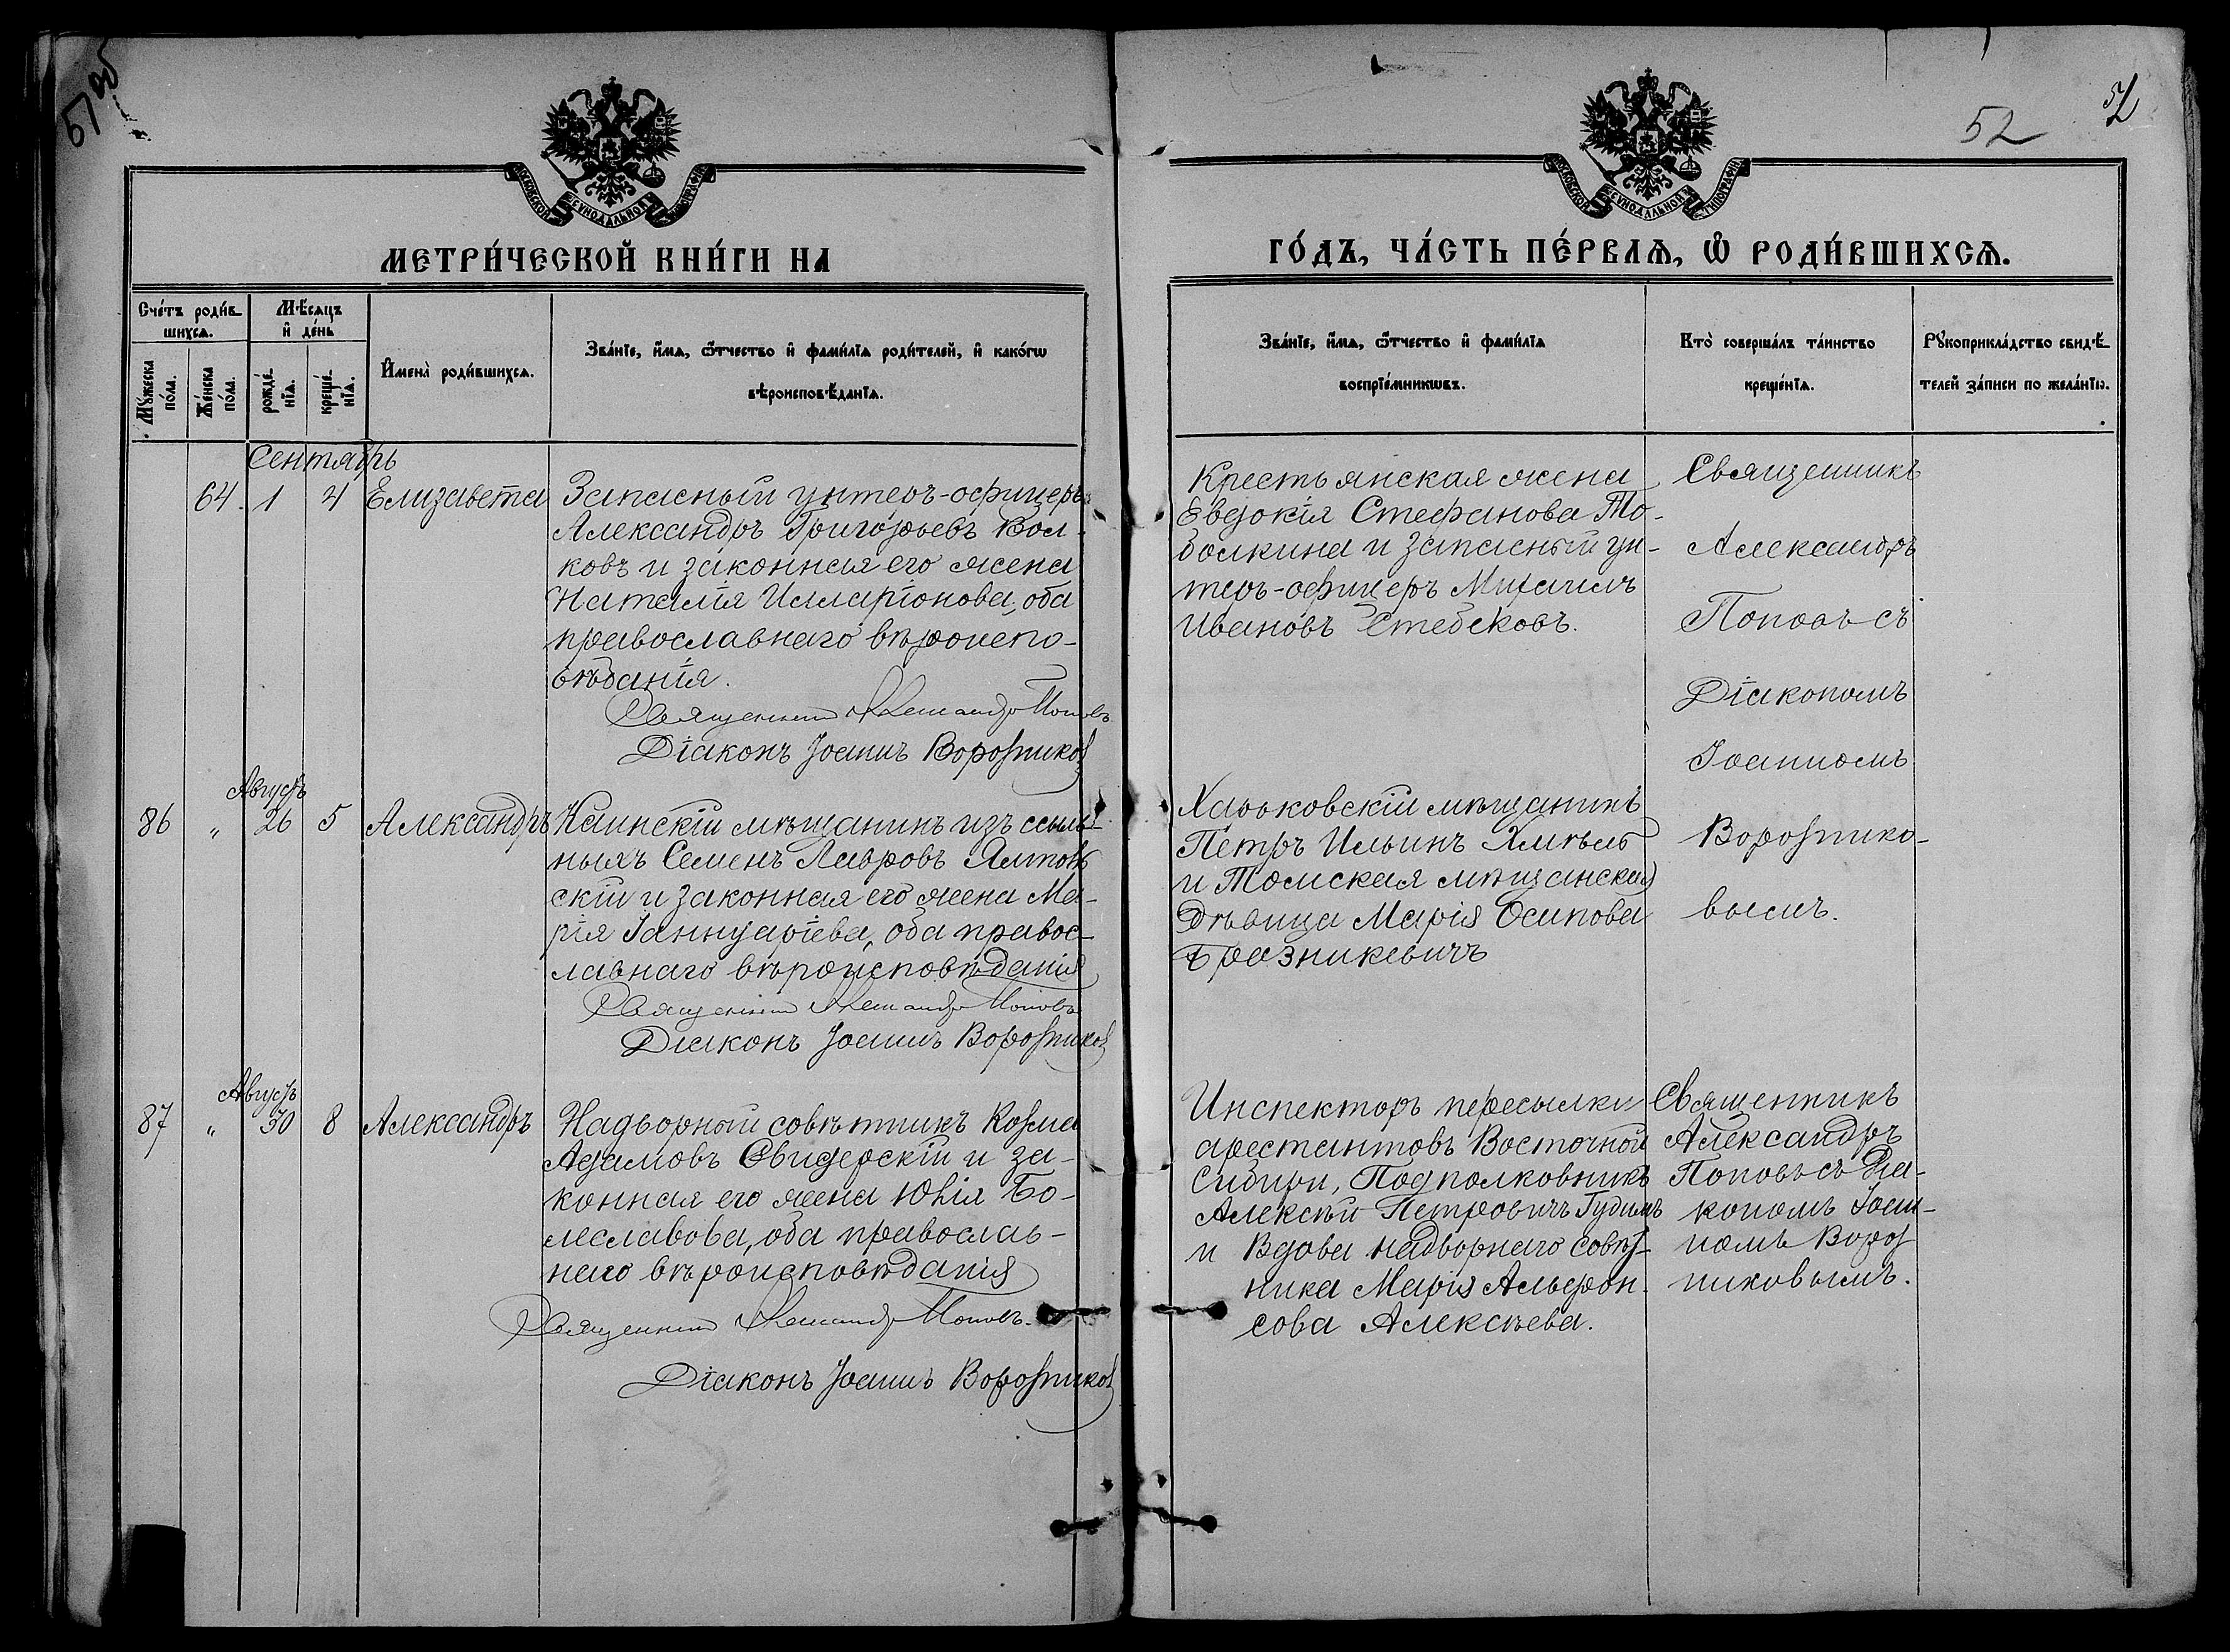 52
52
МЕТРИ́ЧЕСКОЙ КНИ́ГИ НА
ГО́ДЪ, ЧА́СТЬ ПЕ́РВАѦ, Ѡ҆ РОДИ́ВШИХСѦ.
Сче́тъ роди́в-
шихсѧ.
Мꙋ́жеска по́ла.
Же́нска по́ла.
Мѣ́сѧцъ
и҆ де́нь
рожде́-
нїѧ.
креще́-
нїѧ.
И҆мена̀ роди́вшихсѧ.
Зва́нїе, и҆́мѧ, ѻ҆́тчество и҆ фами́лїѧ роди́телей, и҆ како́гѡ
вѣроисповѣ́данїѧ.
Зва́нїе, и҆́мѧ, ѻ҆́тчество и҆ фами́лїѧ
воспрїе́мникѡвъ.
Кто̀ соверша́лъ та́инство
креще́нїѧ.
Рꙋкоприкла́дство свидѣ́-
телей за́писи по жела́нїю.
Сентябрь
64. 1 4 Елизавета
Запасный унтеръ-офицеръ
Александръ Григорьевъ Вол-
ковъ и законная его жена
Наталія Илларіонова, оба
православнаго вѣроиспо-
вѣданія.
Священникъ Александръ Поповъ
Діаконъ ІоаннъВоротников
Крестьянская жена
Евдокія Стефанова То-
болкина и запасный ун-
теръ-офицеръ Михаилъ
Ивановъ Стебековъ.
Священникъ
Александръ
Поповъ съ
Діакономъ
Іоанномъ
Воротнико-
вымъ.
Августъ
86 „ 26 5 Александръ
Каинскій мѣщанинъ изъ ссыль-
ныхъ Семенъ Лавровъ Ялтов
скій и законная его жена Ма-
рія Іаннуаріева, оба правос-
лавнаго вѣроисповѣданія
Священникъ Александръ Поповъ
Діаконъ Іоаннъ Воротников
Харьковскій мѣщанинъ
Петръ Ильинъ Хмѣль
и Томская мѣщанская
дѣвица Марія Осипова
Бразникевичъ
Августъ
87 „ 30 8 Александръ
Надворный совѣтникъ Козма
Адамовъ Свидерскій и за-
конная его жена Юлія Бо-
леславова, оба православ-
наго вѣроисповѣданія
Священникъ Александръ Поповъ.
Діаконъ Іоаннъ Воротников
Инспекторъ пересылки
арестантовъ Восточной
Сибири, Подполковникъ
Алексѣй Петровичъ Гудимъ
и Вдова надворнаго совѣт-
ника Марія Альфон-
сова Алексѣева.
Священникъ
Александръ
Поповъ съ Діа-
кономъ Іоан-
номъ Ворот
никовымъ.